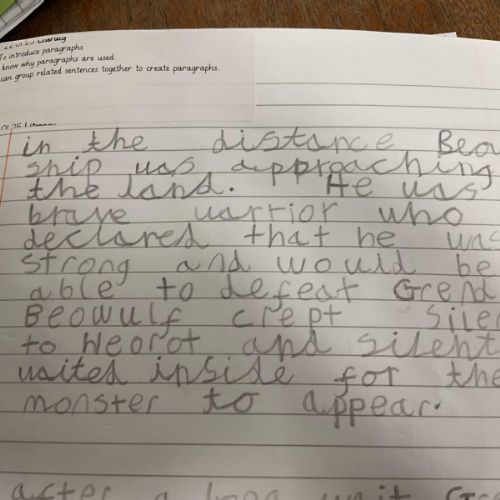 22.01.25 Literacy
To introduce paragraphs
know why paragraphs are used.
can group related sentences together to create paragraphs.
in the distance Beo
ship was approaching
the land. He was
brave warrior who
declared that he was
strong and would be
able to defeat Grend
Beowulf crept silen
to Heorot and silent
waited inside for the
monster to appear.
after a long wait Gr